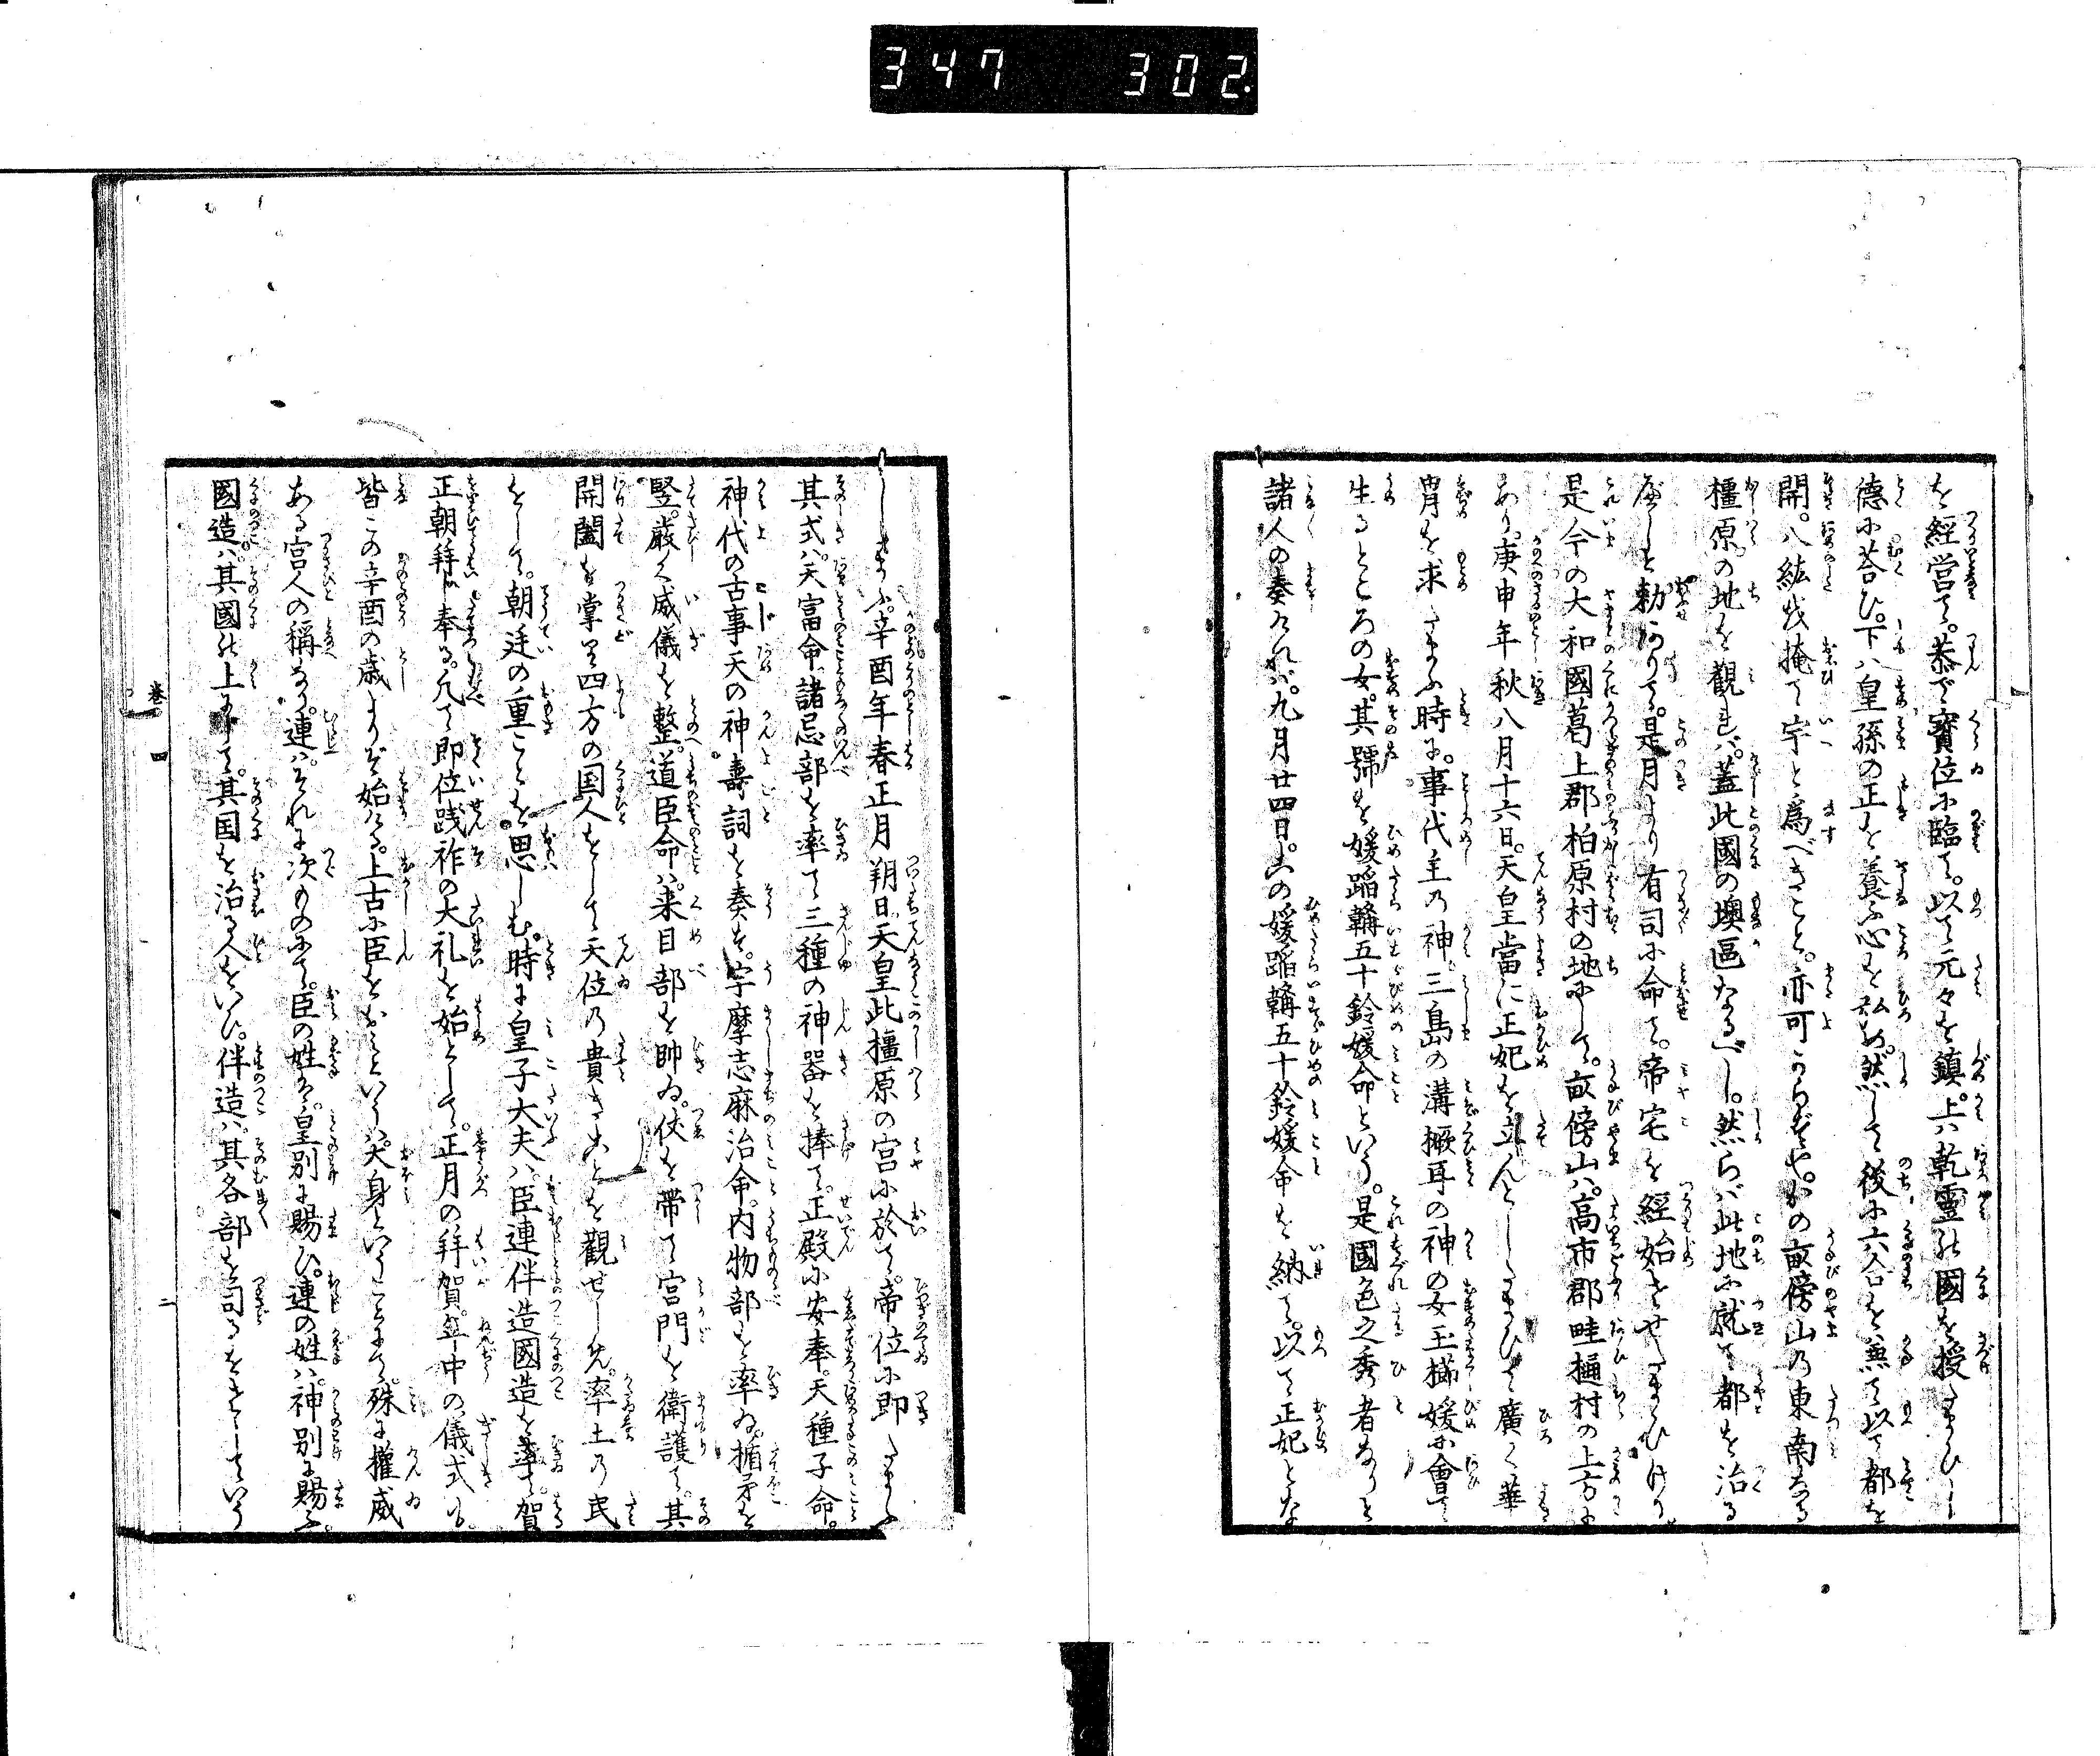 347 302.
を経営て。恭で寳位に臨て。以て元々を鎮。上ハ乾霊の國を授たまひし
德に荅ひ。下ハ皇孫の正を養ふ心を弘め。然して後に六合を兼て以て都を
開。八紘を掩て宇と爲べきこと。亦可らずや。かの畝傍山の東南なる
橿原の地を觀れバ。蓋此國の墺區なるべし。然らバ此地に就て都を治る
べしと勅ありて。是月より有司に命て。帝宅を經始させたまひけり。
是今の大和國葛上郡柏原村の地にして。畝傍山ハ高市郡畦樋村の上方に
あり。庚申年秋八月十六日。天皇當に正妃を立んとしたまひて廣く華
冑を求たまふ時に。事代主の神。三島の溝橛耳の神の女玉櫛媛に會て
生るところの女。其號を媛蹈鞴五十鈴媛命といふ。是國色之秀者なりと
諸人の奏けれバ。九月廿四日。この媛蹈鞴五十鈴媛命を納て。以て正妃とな
したまふ。辛酉年春正月朔日。天皇此橿原の宮に於て。帝位に即たまふ
其式ハ天富命。諸忌部を率て三種の神器を捧て。正殿に安奉。天種子命。
神代の古事天の神壽詞を奏す。宇摩志麻治命。内物部を率ゐ。楯矛を
竪。嚴く威儀を整。道臣命ハ。来目部を帥ゐ。仗を帯て宮門を衛護て。其
開闔を掌り四方の国人をして天位の貴きことを觀せしめ。率土の民
をして。朝廷の重ことを思しむ。時に皇子大夫ハ。臣連伴造國造を率て。賀
正朝拜し奉る。凡て即位践祚の大礼を始として。正月の拜賀。年中の儀式も。
皆この辛酉の歳よりぞ始れる。上古に臣をおミといふハ。大身といふことにて。殊に權威
ある宮人の稱なり。連ハ。それに次ものにて。臣の姓ハ。皇別に賜ひ。連の姓ハ。神別に賜ふ。
國造ハ。其國の上にて。其国を治る人をいひ。伴造ハ。其各部を司るをさしていふ
巻 四
二